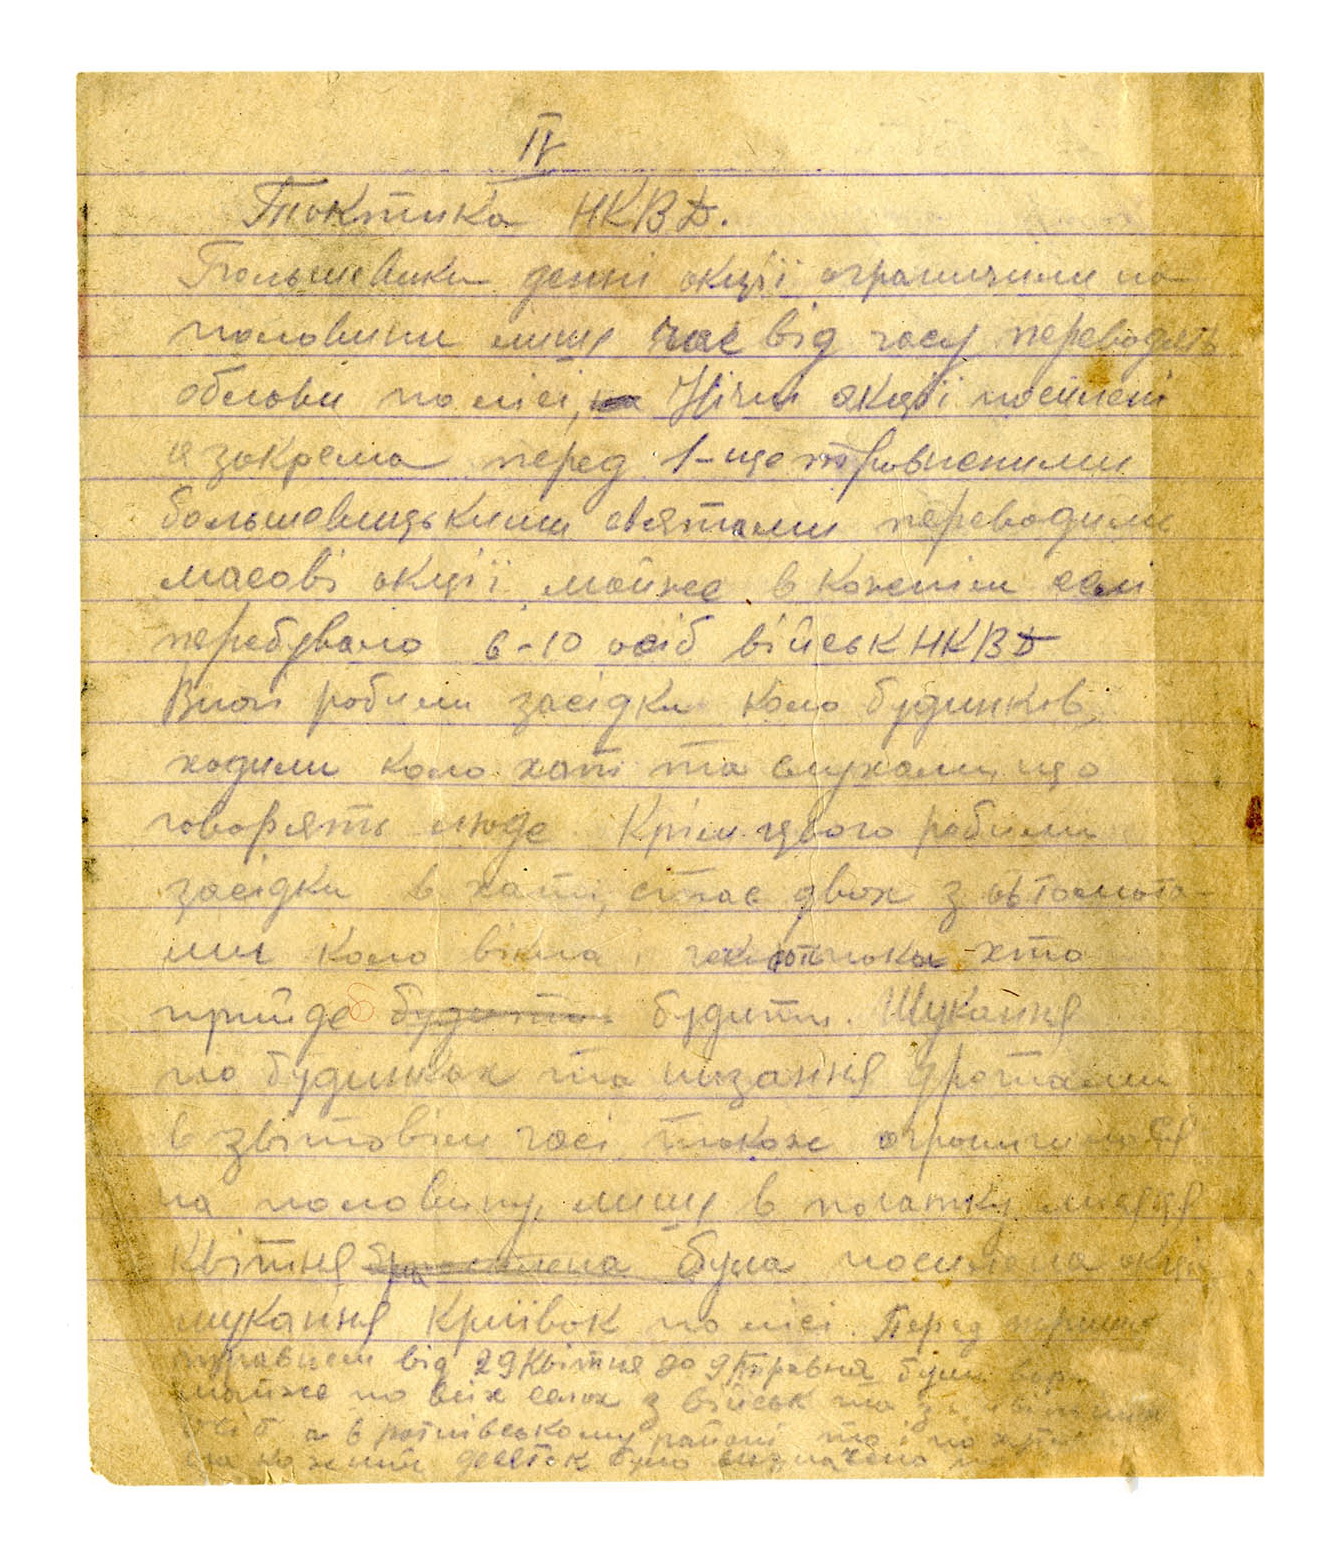 IV
Тактика НКВД.
Большевики денні акції ограничили на
половини лишу час від часу переводять
облови по лісі, на Нічні акції посилені
а зокрема перед 1-ще травневими
большовицькими святами переводили
масові акції майже в кожнім селі
перебувало 6-10 осіб військ НКВД
Вночі робили засідки коло будинків,
ходили коло хат та слухали, що
говорять люде. Крім цього робили
засідки в хаті, стає двох з автомата-
ми коло вікна і хто
прийде будити. Шукання
по будинках та шпзання дротами
в звітовім часі також ограничилося
на половину, лишу в початку місяця
Квітня була посилена акція
шукання Криївок по лісі. Перед першим
травнем від 29 Квітня до 9 Травня були
майже по всіх селах з військ та
осіб а в ратнівському районі то і по
на кожний десяток було визначено по